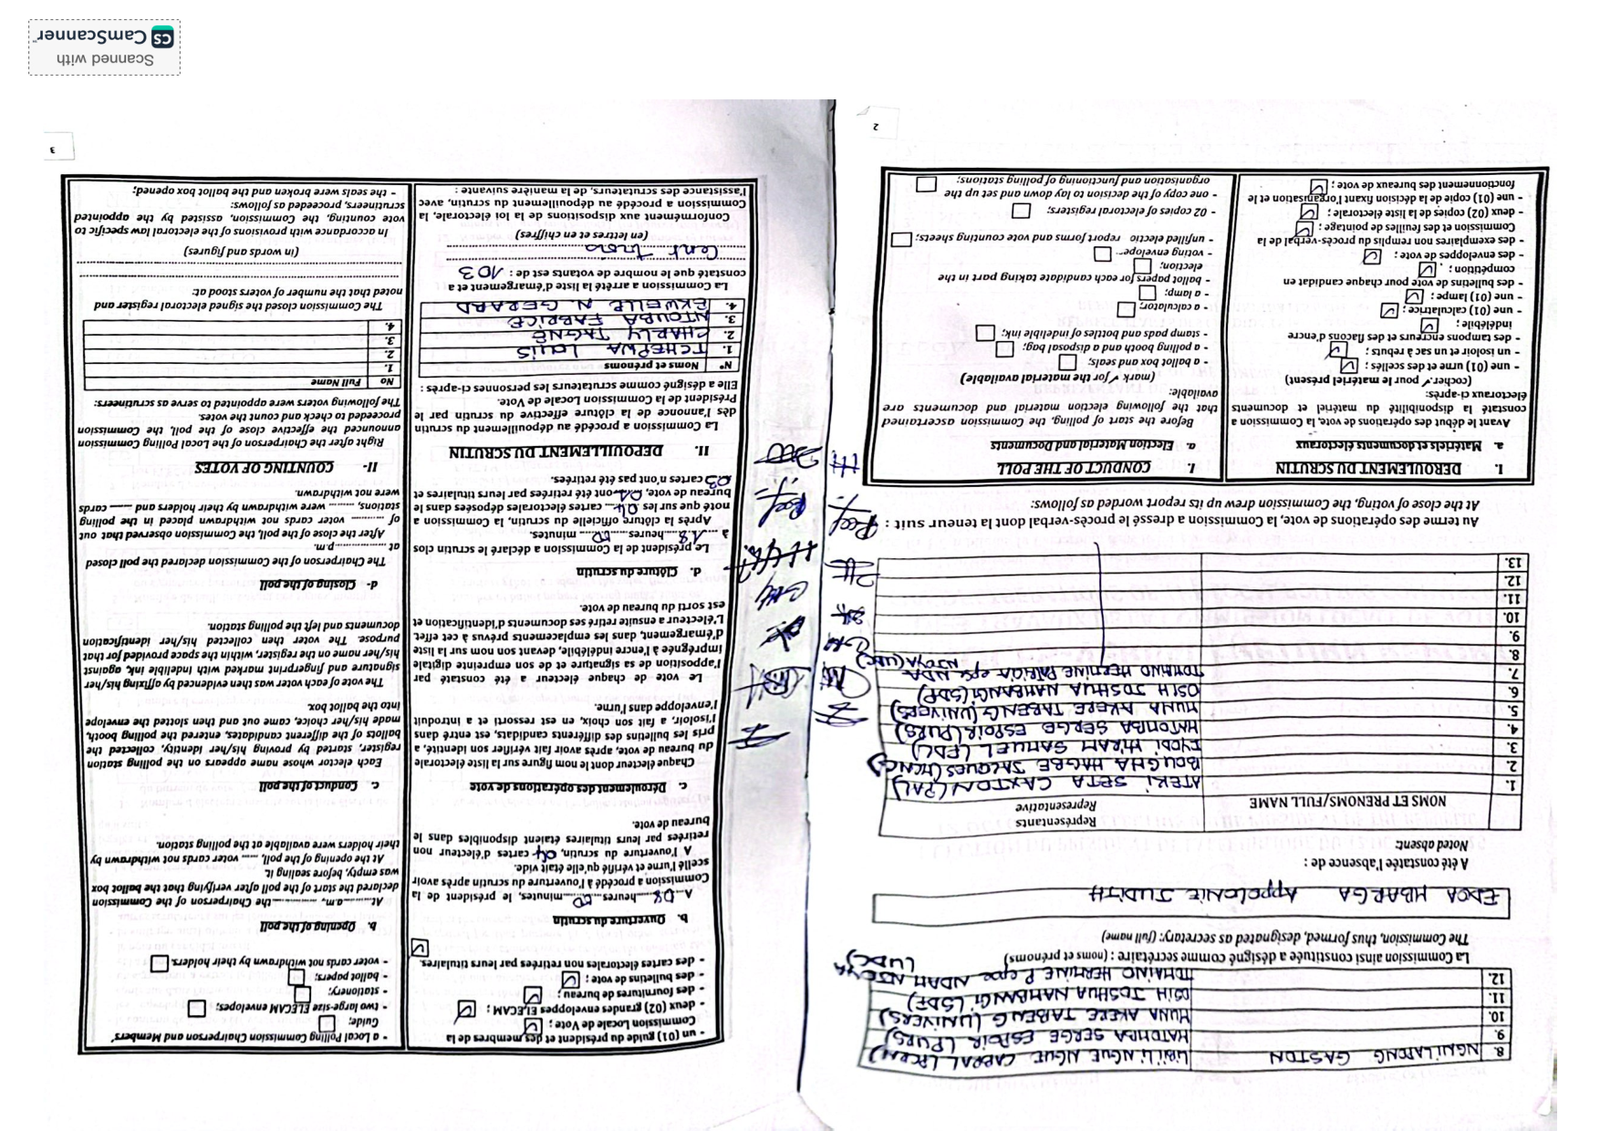 8. NGNILATONG GASTON LIBII LI NGUE NGUE CABRAL (PCRN)
9. MATOMBA SERGE ESPOIR (PURS)
10. MUNA AKERE TABENG (UNIVERS)
11. OSIH JOSHUA NAMBANGI (SDF)
12. TOMAINO HERMINE P. epse NDAM NJOYA (UDC)
La Commission ainsi constituée a désigné comme secrétaire : (noms et prénoms)
The Commission, thus formed, designated as secretary: (full name)
APPOLONIE JUDITH
A été constatée l'absence de :
Noted absent:
NOMS ET PRENOMS/FULL NAME
Représentants
Representative
1. ATEKI SETA CAXTON (PAL)
2. BOUGHA HAGBE JACQUES (MCNC)
3. IYODI HIRAM SAMUEL (FDC)
4. MATOMBA SERGE ESPOIR (PURS)
5. MUNA AKERE TABENG (UNIVERS)
6. OSIH JOSHUA NAMBANGI (SDF)
7. TOMAINO HERMINE PATRICIA epse NDAM
8. NJOYA (UDC)
9.
10.
11.
12.
13.
Au terme des opérations de vote, la Commission a dressé le procès-verbal dont la teneur suit :
At the close of voting, the Commission drew up its report worded as follows:
I. DEROULEMENT DU SCRUTIN
a. Matériels et documents électoraux
Avant le début des opérations de vote, la Commission a
constaté la disponibilité du matériel et documents
électoraux ci-après:
(cocher ✓ pour le matériel présent)
- une (01) urne et des scellés ;
- un isoloir et un sac à rebuts ;
- des tampons encreurs et des flacons d'encre
indélébile;
- une (01) calculatrice ;
- une (01) lampe ;
- des bulletins de vote pour chaque candidat en
compétition ;
- des enveloppes de vote ;
- des exemplaires non remplis du procès-verbal de la
Commission et des feuilles de pointage ;
- deux (02) copies de la liste électorale ;
- une (01) copie de la décision fixant l'organisation et le
fonctionnement des bureaux de vote ;
I. CONDUCT OF THE POLL
a. Election Material and Documents
Before the start of polling, the Commission ascertained
that the following election material and documents are
available:
(mark ✓ for the material available)
- a ballot box and seals;
- a polling booth and a disposal bag;
- stamp pads and bottles of indelible ink;
- a calculator;
- a lamp;
- ballot papers for each candidate taking part in the
election;
- voting envelope
- unfilled electio report forms and vote counting sheets;
- 02 copies of electoral registers;
- one copy of the decision to lay down and set up the
organisation and functioning of polling stations;
2
- un (01) guide du président et des membres de la
Commission Locale de Vote ;
- deux (02) grandes enveloppes ELECAM ;
- des fournitures de bureau ;
- des bulletins de vote ;
- des cartes électorales non retirées par leurs titulaires.
b. Ouverture du scrutin
A 08 heures 00 minutes, le président de la
Commission a procédé à l'ouverture du scrutin après avoir
scellé l'urne et vérifié qu'elle était vide.
A l'ouverture du scrutin, 04 cartes d'électeur non
retirées par leurs titulaires étaient disponibles dans le
bureau de vote.
c. Déroulement des opérations de vote
Chaque électeur dont le nom figure sur la liste électorale
du bureau de vote, après avoir fait vérifier son identité, a
pris les bulletins des différents candidats, est entré dans
l'isoloir, a fait son choix, en est ressorti et a introduit
l'enveloppe dans l'urne.
Le vote de chaque électeur a été constaté par
l'apposition de sa signature et de son empreinte digitale
imprégnée à l'encre indélébile, devant son nom sur la liste
d'émargement, dans les emplacements prévus à cet effet.
L'électeur a ensuite retiré ses documents d'identification et
est sorti du bureau de vote.
d. Clôture du scrutin
Le président de la Commission a déclaré le scrutin clos
à 18 heures 00 minutes.
Après la clôture officielle du scrutin, la Commission a
noté que sur les 04 cartes électorales déposées dans le
bureau de vote, 01 ont été retirées par leurs titulaires et
03 cartes n'ont pas été retirées.
II. DEPOUILLEMENT DU SCRUTIN
La Commission a procédé au dépouillement du scrutin
dès l'annonce de la clôture effective du scrutin par le
Président de la Commission Locale de Vote.
Elle a désigné comme scrutateurs les personnes ci-après :
N° Noms et prénoms
1. TCHEPWA LOUIS
2. CHARLY TAGNE
3. NTOUBA FABRICE
4. EKWELLE N. GERARD
La Commission a arrêté la liste d'émargement et a
constaté que le nombre de votants est de : 103
Cent trois
(en lettres et en chiffres)
Conformément aux dispositions de la loi électorale, la
Commission a procédé au dépouillement du scrutin, avec
l'assistance des scrutateurs, de la manière suivante :
- a Local Polling Commission Chairperson and Members'
Guide;
- two large-size ELECAM envelopes;
- stationery;
- ballot papers;
- voter cards not withdrawn by their holders.
b. Opening of the poll
At........a.m., ............the Chairperson of the Commission
declared the start of the poll after verifying that the ballot box
was empty, before sealing it.
At the opening of the poll, ...... voter cards not withdrawn by
their holders were available at the polling station.
c. Conduct of the poll
Each elector whose name appears on the polling station
register, started by proving his/her identity, collected the
ballots of the different candidates, entered the polling booth,
made his/her choice, came out and then slotted the envelope
into the ballot box.
The vote of each voter was then evidenced by affixing his/her
signature and fingerprint marked with indelible ink, against
his/her name on the register, within the space provided for that
purpose. The voter then collected his/her identification
documents and left the polling station.
d- Closing of the poll
The Chairperson of the Commission declared the poll closed
at .................p.m.
After the close of the poll, the Commission observed that out
of .......... voter cards not withdrawn placed in the polling
stations, ........ were withdrawn by their holders and ........ cards
were not withdrawn.
II- COUNTING OF VOTES
Right after the Chairperson of the Local Polling Commission
announced the effective close of the poll, the Commission
proceeded to check and count the votes.
The following voters were appointed to serve as scrutineers:
No Full Name
1.
2.
3.
4.
The Commission closed the signed electoral register and
noted that the number of voters stood at:
(in words and figures)
In accordance with provisions of the electoral law specific to
vote counting, the Commission, assisted by the appointed
scrutineers, proceeded as follows:
- the seals were broken and the ballot box opened;
3
Scanned with
CS CamScanner